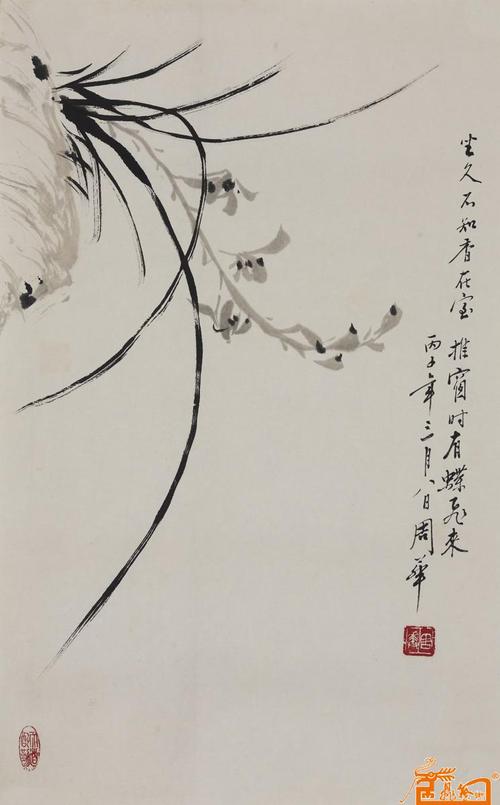 坐久不知香在室 推窗时有蝶飞来
丙子年三月八日周華